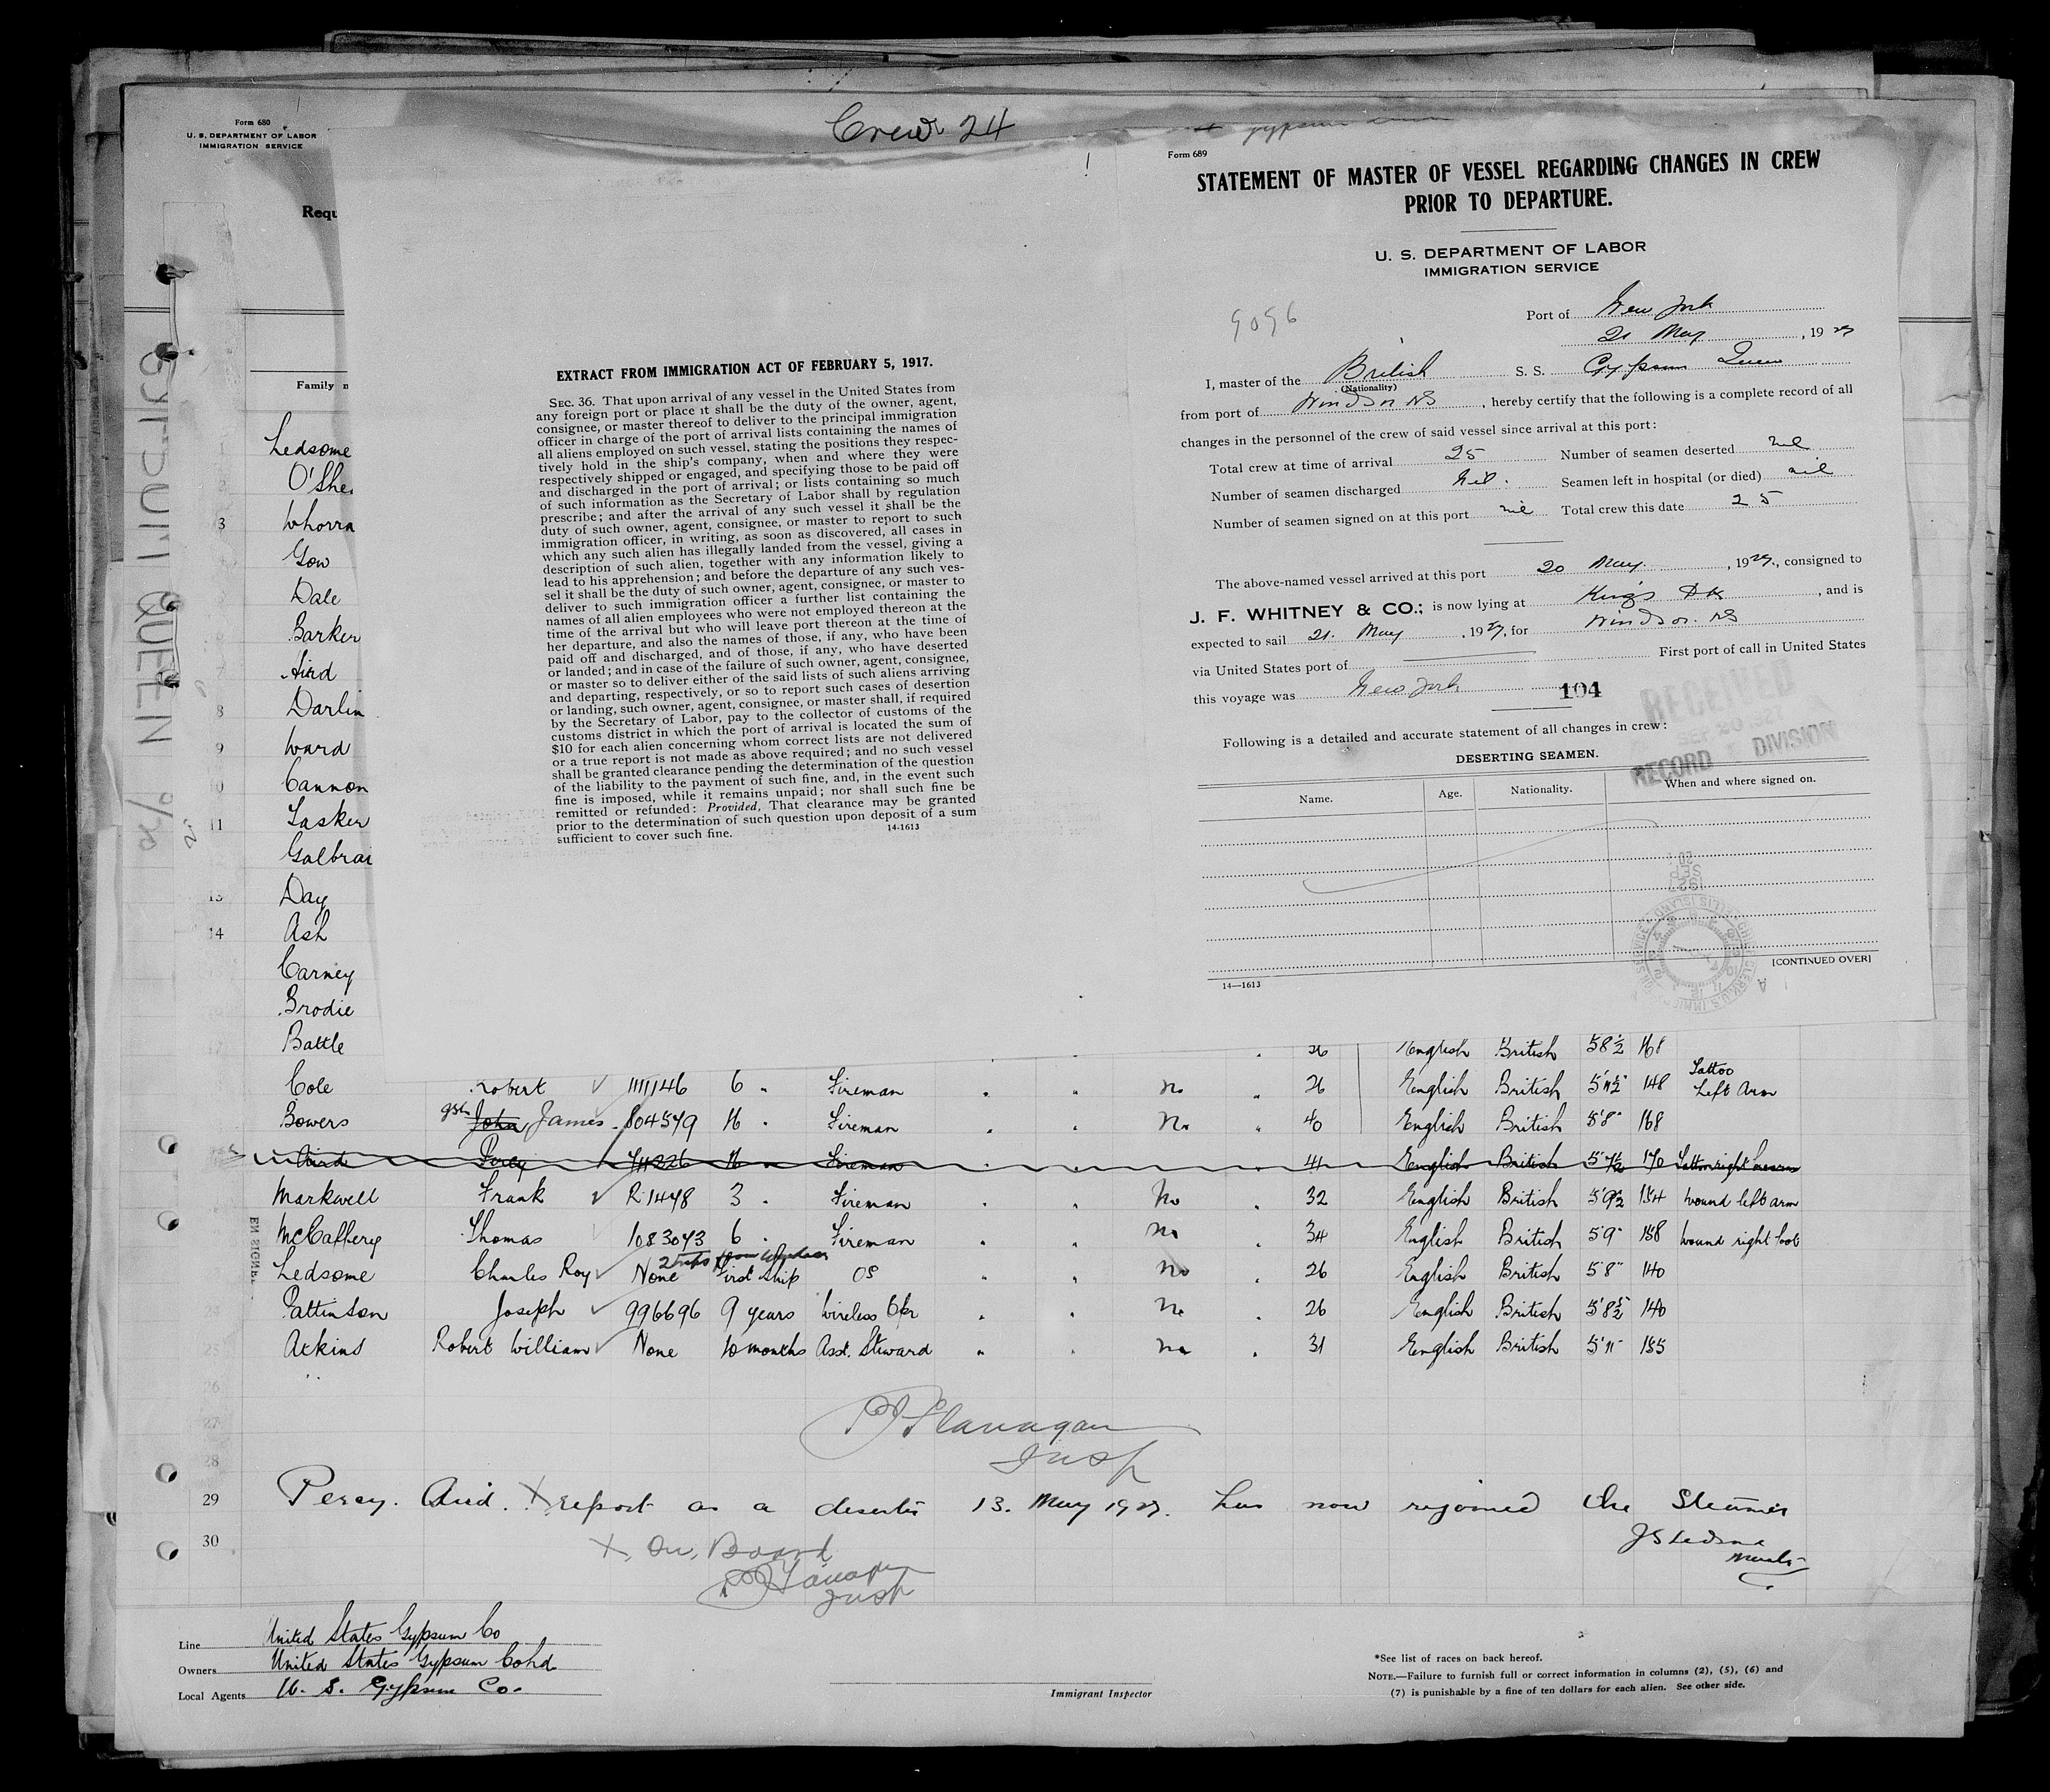 Crew 24
Form 680
U. S. DEPARTMENT OF LABOR
IMMIGRATION SERVICE
Requ
Family n
GYPSUM QUEEN
Ledsome
O'She
3 Whorra
Gow
Dale
Barker
7 Aird
8 Darlin
9 Ward
10 Cannon
11 Lasker
Galbrai
13 Day
14 Ash
Carney
Brodie
17 Battle
EXTRACT FROM IMMIGRATION ACT OF FEBRUARY 5, 1917.
SEC. 36. That upon arrival of any vessel in the United States from
any foreign port or place it shall be the duty of the owner, agent,
consignee, or master thereof to deliver to the principal immigration
officer in charge of the port of arrival lists containing the names of
all aliens employed on such vessel, stating the positions they respec-
tively hold in the ship's company, when and where they were
respectively shipped or engaged, and specifying those to be paid off
and discharged in the port of arrival; or lists containing so much
of such information as the Secretary of Labor shall by regulation
prescribe; and after the arrival of any such vessel it shall be the
duty of such owner, agent, consignee, or master to report to such
immigration officer, in writing, as soon as discovered, all cases in
which any such alien has illegally landed from the vessel, giving a
description of such alien, together with any information likely to
lead to his apprehension; and before the departure of any such ves-
sel it shall be the duty of such owner, agent, consignee, or master to
deliver to such immigration officer a further list containing the
names of all alien employees who were not employed thereon at the
time of the arrival but who will leave port thereon at the time of
her departure, and also the names of those, if any, who have been
paid off and discharged, and of those, if any, who have deserted
or landed; and in case of the failure of such owner, agent, consignee,
or master so to deliver either of the said lists of such aliens arriving
and departing, respectively, or so to report such cases of desertion
or landing, such owner, agent, consignee, or master shall, if required
by the Secretary of Labor, pay to the collector of customs of the
customs district in which the port of arrival is located the sum of
$10 for each alien concerning whom correct lists are not delivered
or a true report is not made as above required; and no such vessel
shall be granted clearance pending the determination of the question
of the liability to the payment of such fine, and, in the event such
fine is imposed, while it remains unpaid; nor shall such fine be
remitted or refunded: Provided, That clearance may be granted
prior to the determination of such question upon deposit of a sum
sufficient to cover such fine. 14-1613
Form 689
STATEMENT OF MASTER OF VESSEL REGARDING CHANGES IN CREW
PRIOR TO DEPARTURE.
U. S. DEPARTMENT OF LABOR
IMMIGRATION SERVICE
9096
Port of New York
21 May, 1927
I, master of the British S. S. Gypsum Queen
(Nationality)
from port of Windsor NS, hereby certify that the following is a complete record of all
changes in the personnel of the crew of said vessel since arrival at this port:
Total crew at time of arrival 25 Number of seamen deserted nil
Number of seamen discharged Nil. Seamen left in hospital (or died) nil
Number of seamen signed on at this port nil Total crew this date 25
The above-named vessel arrived at this port 20 May, 1927, consigned to
J. F. WHITNEY & CO.; is now lying at Kings Dk, and is
expected to sail 21. May, 1927, for Windsor. NS
via United States port of First port of call in United States
this voyage was New York 104
RECEIVED
SEP 20 1927
RECORD DIVISION
Following is a detailed and accurate statement of all changes in crew:
DESERTING SEAMEN.
Name. Age. Nationality. When and where signed on.
[CONTINUED OVER]
14—1613
26 English British 5 8½ 168
Cole Robert 1111146 6 " Fireman " " no " 26 English British 5'11½" 148 Tattoo Left Arm
Bowers John James 804579 16 " Fireman " " No " 40 English British 5'8" 168
Aird Percy 711226 16 " Fireman " " " 41 English British 5'7½ 170 Tattoo right forearm
Markwell Frank R.1448 3 " Fireman " " No " 32 English British 5'9½ 154 wound left arm
McCaffery Thomas 1083043 6 " Fireman " " no " 34 English British 5'9" 158 wound right foot
2 trips from Windsor
Ledsome Charles Roy None First ship OS " " no " 26 English British 5'8" 140
Pattinson Joseph 996696 9 years Wireless Opr " " No " 26 English British 5'8½ 140
25 Atkins Robert William None 10 months Asst. Steward " " no " 31 English British 5'11" 155
26
27
Flanagan
28
Insp
29 Percy. Aird. X report as a deserter 13. May 1927. has now rejoined the Steamer
30
X, On, Board
J S Ledsome
Master
Flanagan
Insp
Line United States Gypsum Co
Owners United States Gypsum Co Ltd.
Local Agents U. S. Gypsum Co.
Immigrant Inspector
*See list of races on back hereof.
NOTE.—Failure to furnish full or correct information in columns (2), (5), (6) and
(7) is punishable by a fine of ten dollars for each alien. See other side.